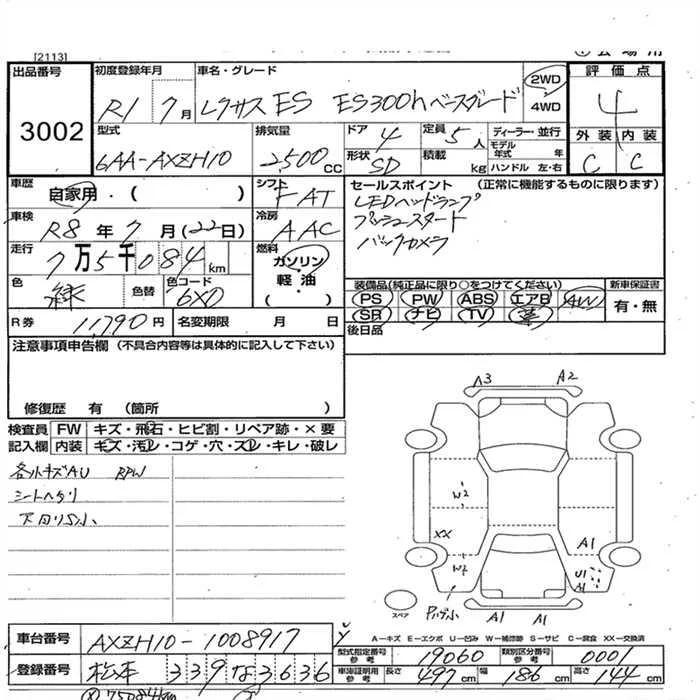 [2113]
出品番号 3002
初度登録年月 R1 7月
車名・グレード レクサス ES ES300h ベースグレード
2WD
4WD
評価点 4
外装 内装
C C
型式 6AA-AXZH10
排気量 2500 CC
ドア 4
定員 5人
形状 SD
積載 kg
ディーラー・並行
モデル年式 年
ハンドル 左・右
車歴 自家用・( )
シフト FAT
車検 R8年7月(22日)
冷房 AAC
走行 7万5千084km
燃料 ガソリン・軽油
( )
色 緑
色替
色コード 6X0
セールスポイント (正常に機能するものに限ります)
LEDヘッドランプ
プッシュスタート
バックカメラ
装備品(純正品に限り○をつけてください)
新車保証書
PS PW ABS エアB AW
SR ナビ TV 革
有・無
R券 11,790円
名変期限 月 日
後日品
注意事項申告欄 (不具合内容等は具体的に記入して下さい)
修復歴 有 (箇所 )
検査員 FW キズ・飛石・ヒビ割・リペア跡・×要
記入欄 内装 キズ・汚レ・コゲ・穴・スレ・キレ・破レ
シートヘタリ
A3 A2
W2
XX
W2
A1
U1
A1
A1 A1
スペア
A−キズ E−エクボ U−凹み W−補修跡 S−サビ C−腐食 XX−交換済
車台番号 AXZH10-1008917
登録番号 松本 339 な 3636
型式指定番号 参考 19060
類別区分番号 参考 0001
車庫証明用 参考 長さ 497cm 幅 186cm 高さ 144cm